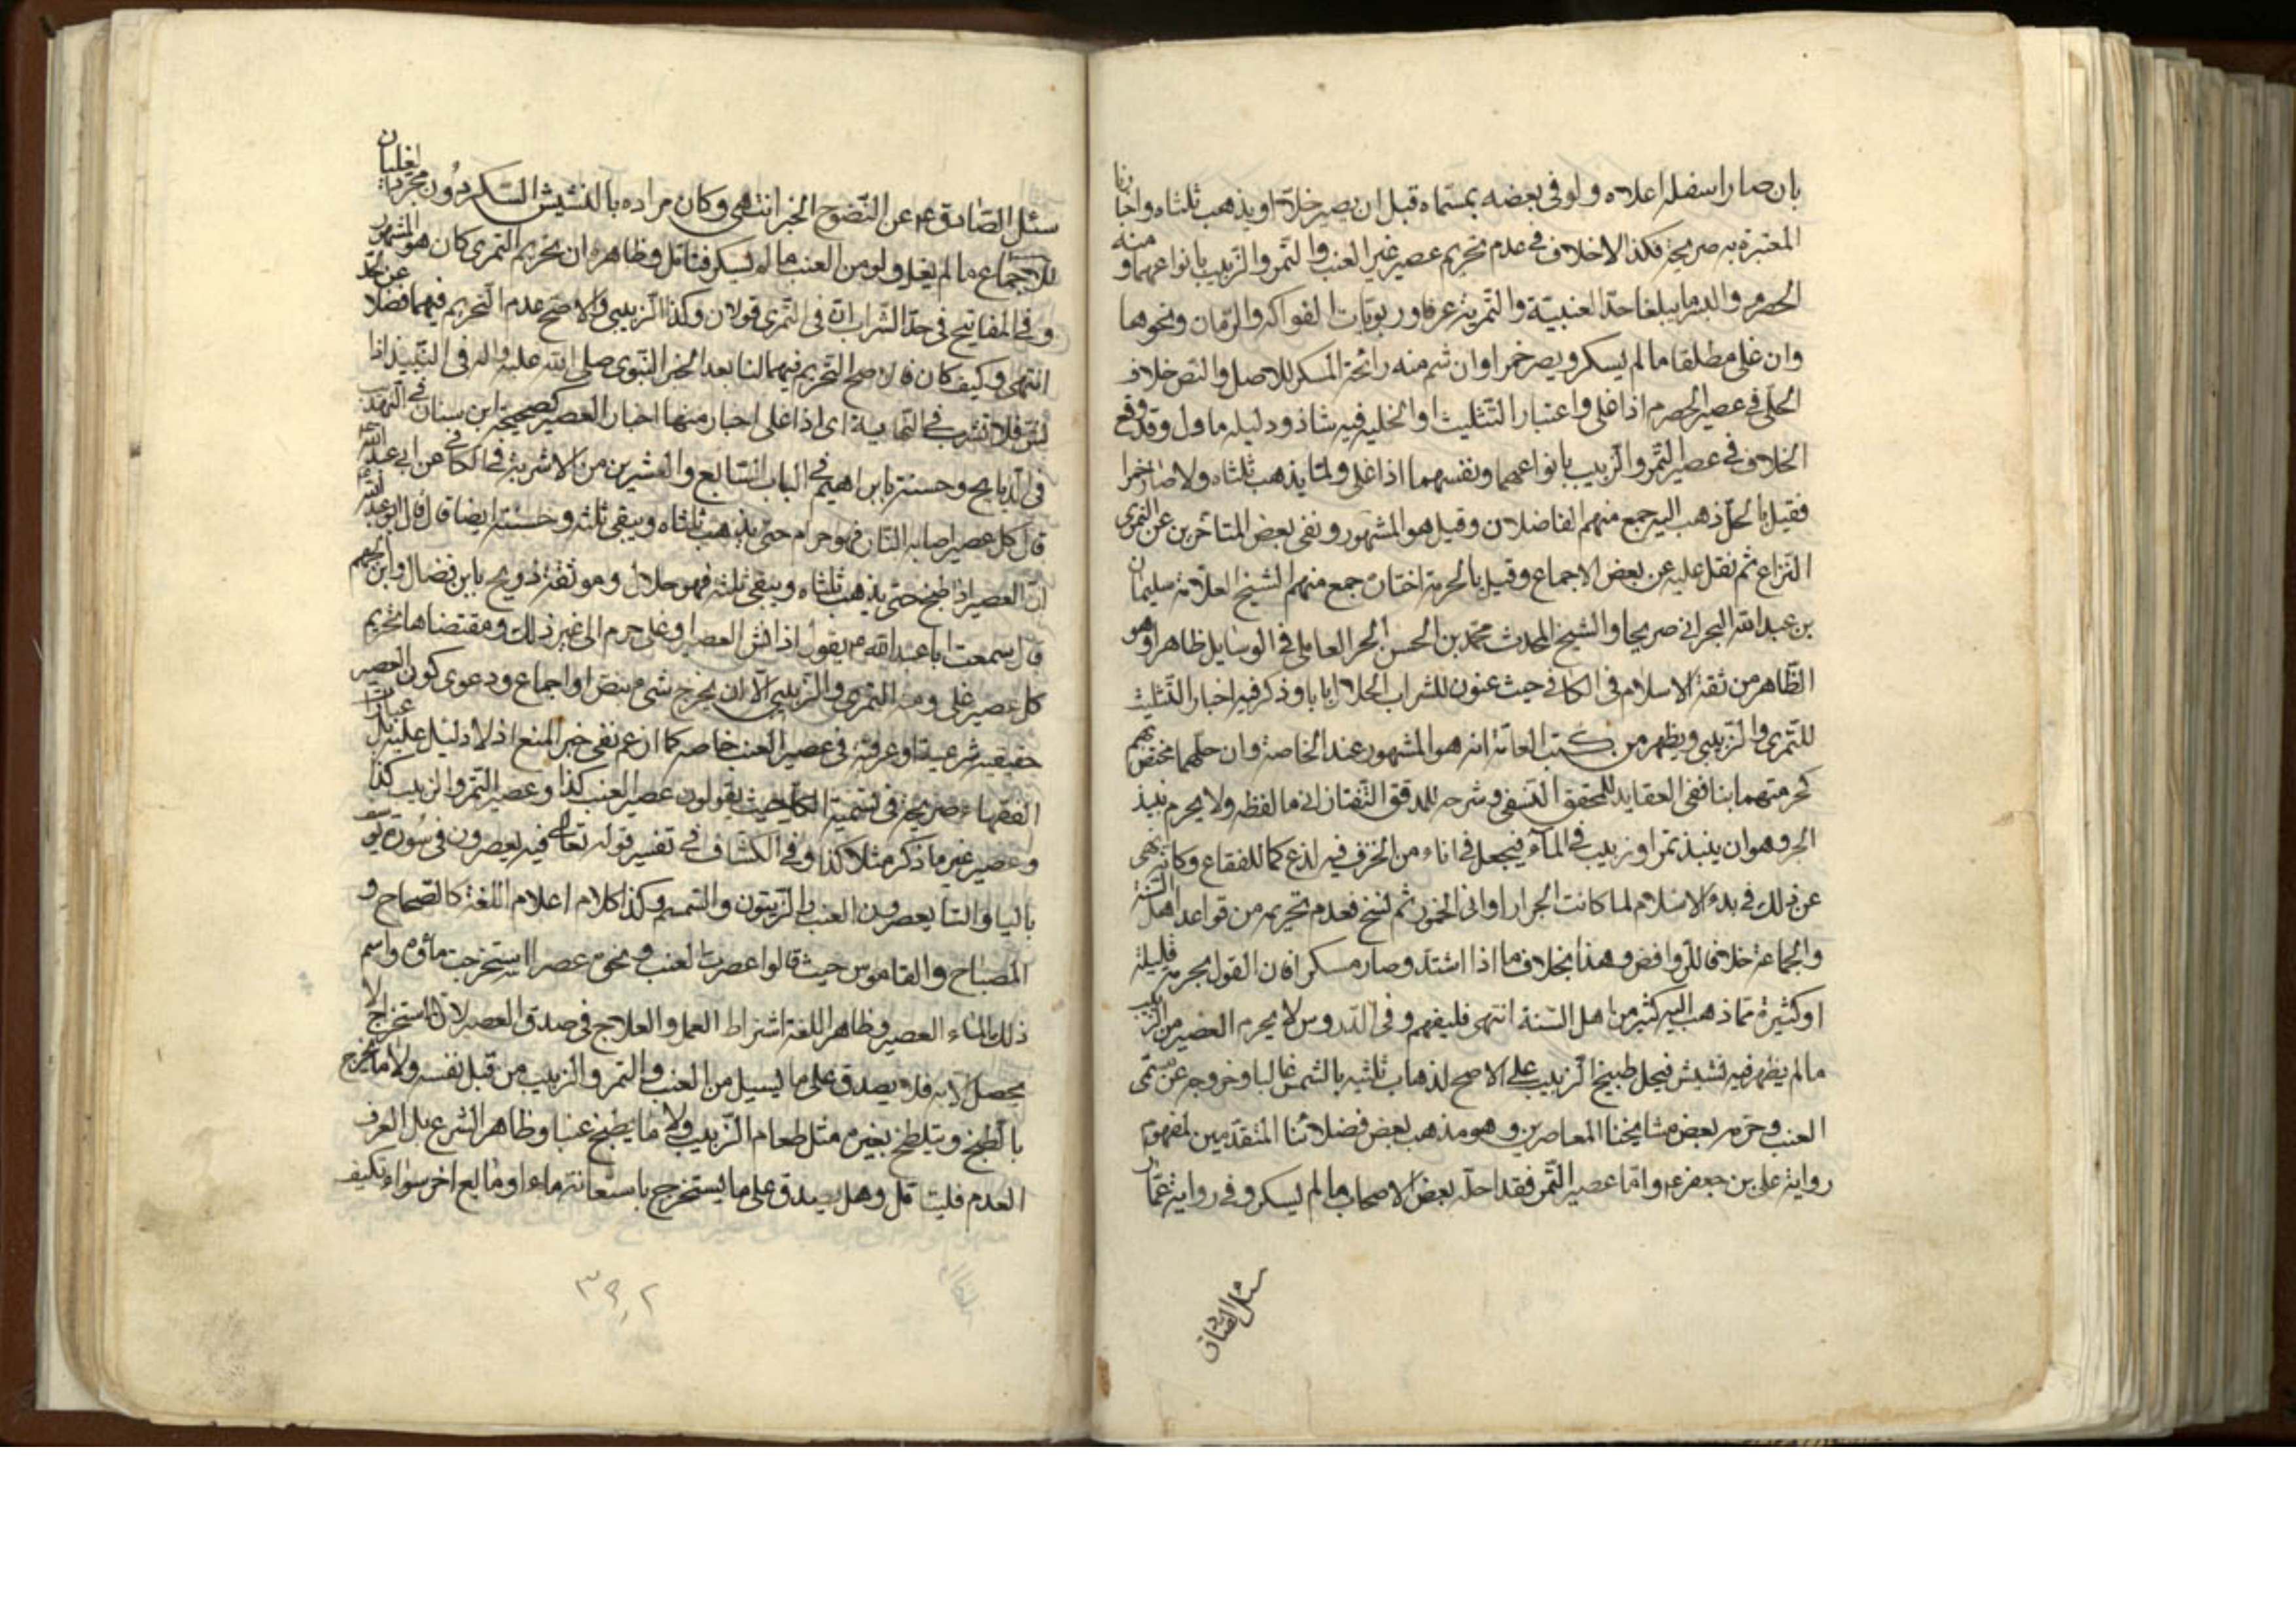 بان صار اسفله اعلاه ولو فى بعضه بمسماه قبل ان يصير خلا او يذهب ثلثاه واخبارنا
المعتبرة به صريحة فكذا لاخلاف فى عدم تحريم عصير غير العنب والتمر والزبيب بانواعهما ومنه
الحصرم والبسر ما يبلغا حد العنبية والتمرية عرفا وربوبات الفواكه والرمان ونحوها
وان غلى مطلقا ما لم يسكر ويصر خمرا وان شم منه رائحة المسكر للاصل والنص خلاف
الحلى فى عصير الحصرم اذا غلى واعتبار التثليث او الخلية فيه شاذ ودليله ماول وقد وقع
الخلاف فى عصير التمر والزبيب بانواعهما ونفسهما اذا غلى ولما يذهب ثلثاه ولا صار خمرا
فقيل بالحل ذهب اليه جمع منهم الفاضلان وقيل هو المشهور ونفى بعض المتاخرين عن التمرى
النزاع ثم نقل عليه عن بعض الاجماع وقيل بالحرمة اختاره جمع منهم الشيخ العلامة سليمان
بن عبد الله البحرانى صريحا والشيخ المحدث محمد بن الحسن الحر العاملى فى الوسايل ظاهرا وهو
الظاهر من ثقة الاسلام فى الكافى حيث عنون للشراب الحلال بابا وذكر فيه اخبار التثليث
للتمرى والزبيبى ويظهر من كتب العامة انه هو المشهور عند الخاصة وان حلهما مختص بهم
كحرمتهما بنا ففى العقايد للمحقق النسفى وشرحه للمدقق التفتازانى ما لفظه ولا يحرم نبيذ
الجر وهو ان ينبذ تمر او زبيب فى الماء فيجعل فى اناء من الخزف فيه لذع كما للفقاع وكانه نهى
عن ذلك فى بدء الاسلام لما كانت الجرار اوانى الخمور ثم نسخ فعدم تحريمه من قواعد اهل السنة
والجماعة خلافا للروافض وهذا بخلاف ما اذا اشتد وصار مسكرا فان القول بحرمة قليله
او كثيره مما ذهب اليه كثير من اهل السنة انتهى فليفهم وفى الدروس لا يحرم العصير من الزبيب
ما لم يظهر فيه نشيش فيحل طبيخ الزبيب على الاصح لذهاب ثلثيه بالشمس غالبا وخروجه عن مسمى
العنب وحرمه بعض مشايخنا المعاصرين وهو مذهب بعض فضلائنا المتقدمين لمفهوم
رواية على بن جعفر ع واما عصير التمر فقد احله بعض الاصحاب ما لم يسكر وفى رواية عمار
سئل الصادق
سئل الصادق ع عن النضوح الخبر انتهى وكان مراده بالنشيش السكر دون مجرد الغليان
للاجماع ما لم يغل ولو من العنب ما لم يسكر فتامل وظاهره ان تحريم التمرى كان هو المشهور
وفى المفاتيح فى حد الشراب ان فى التمرى قولان وكذا الزبيبى والاصح عدم التحريم فيهما فضلا عن الحد
انتهى وكيف كان فالاصح التحريم فيهما لنا بعد الخبر النبوى صلى الله عليه واله فى النبيذ اذا
نش فلا تشرب اى اذا غلى اخبار منها اخبار العصير كصحيحة ابن سنان فى التهذيب
فى الذبايح وحسنته بابراهيم فى الباب السابع والعشرين من الاشربة فى الكافى عن ابى عبد الله
قال كل عصير اصابه النار فهو حرام حتى يذهب ثلثاه ويبقى ثلثه وحسنته ايضا قال قال ابو عبد الله
ان العصير اذا طبخ حتى يذهب ثلثاه ويبقى ثلثه فهو حلال وموثقة ذريح بابن فضال وابن الجهم
قال سمعت ابا عبد الله ع يقول اذا نش العصير او غلى حرم الى غير ذلك ومقتضاها تحريم
كل عصير غلى ومنه التمرى والزبيبى الا ان يخرج شىء بنص او اجماع ودعوى كون العصير
حقيقة شرعية او عرفية فى عصير العنب خاصة كما زعم نفى خير المنع اذ لا دليل عليه بل عبارات
الفقهاء صريحة فى تسمية الكل حيث يقولون عصير العنب كذا وعصير التمر والزبيب كذا
وعصير غير ما ذكر مثلا كذا وفى الكشاف فى تفسير قوله تعالى فيه يعصرون فى سورة يوسف
بالياء والتاء يعصرون العنب والزيتون والسمسم وكذا كلام اعلام اللغة كالصحاح و
المصباح والقاموس حيث قالوا عصرت العنب ونحوه عصرا استخرجت ماؤه واسم
ذلك الماء العصير وظاهر اللغة اشتراط العمل والعلاج فى صدق العصير لان الاستخراج لا
يحصل الا به فلا يصدق على ما يسيل من العنب والتمر والزبيب من قبل نفسه ولا ما يخرج
بالطبخ ويتلطخ بغيره مثل طعام الزبيب ولا ما يطبخ عنبا وظاهر الشرع بل العرف
العدم فليتامل وهل يصدق على ما يستخرج باستعانة ماء او مايع اخر سواء تكيف